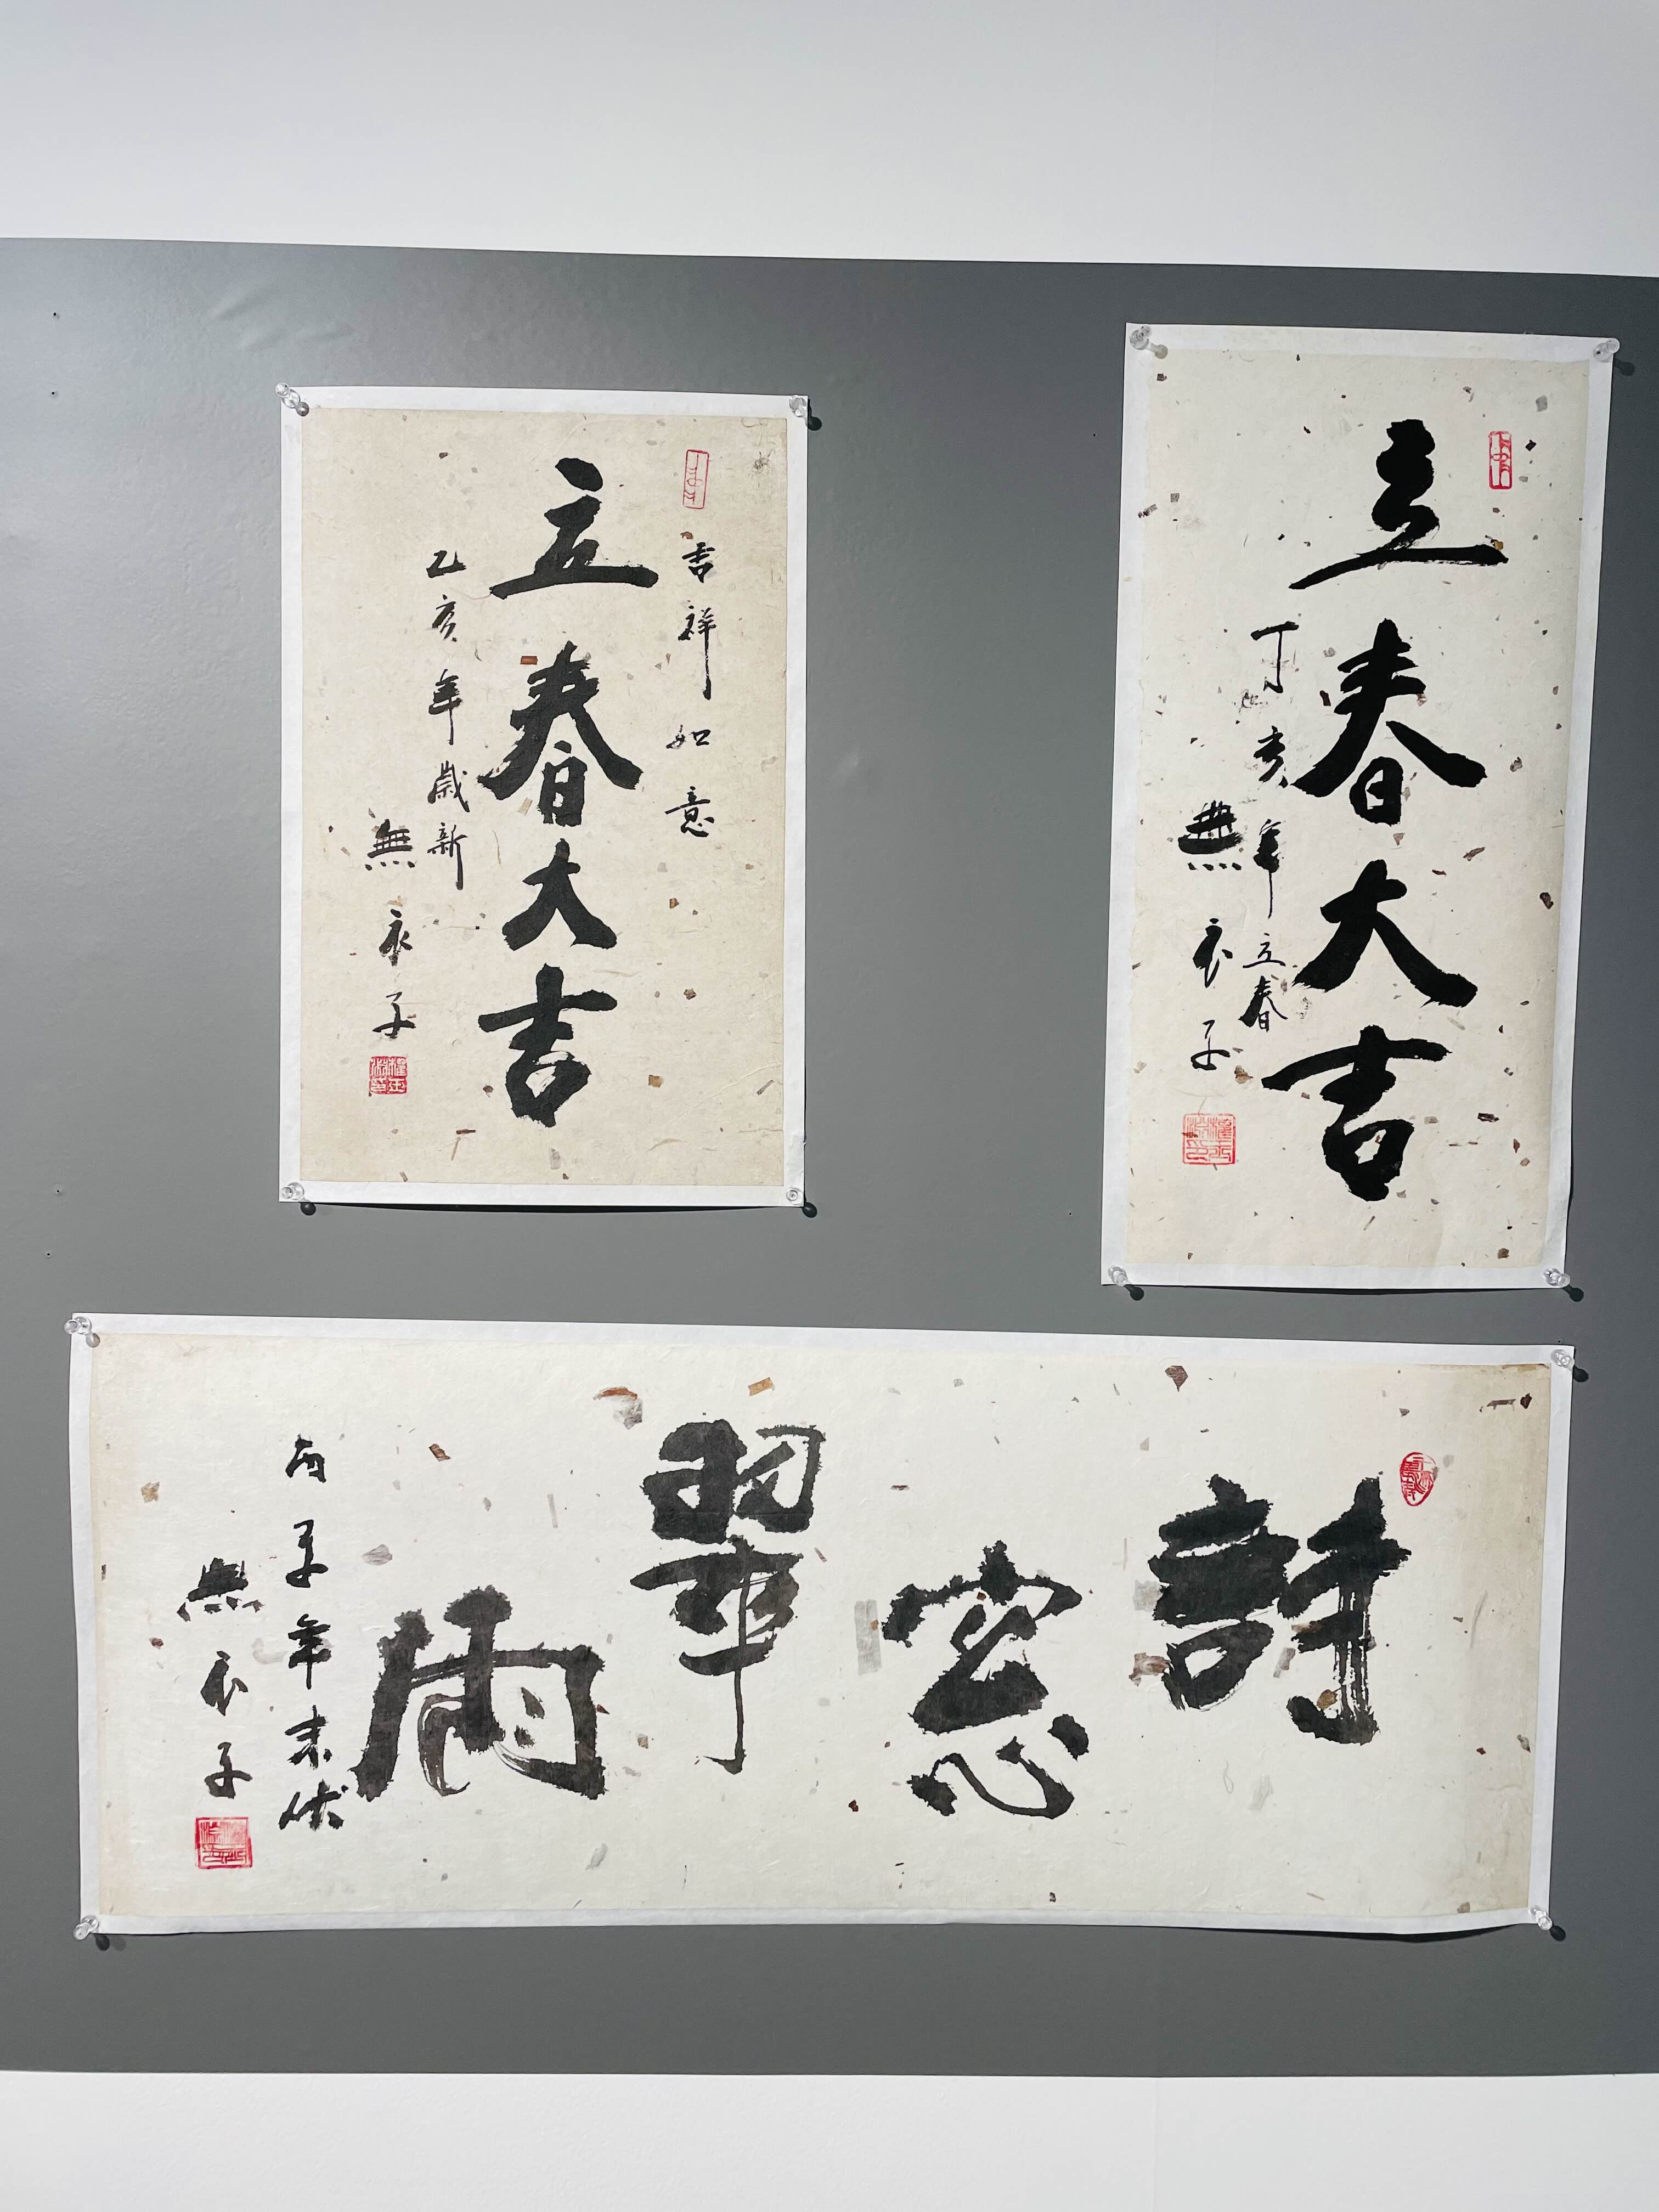 吉祥如意
立春大吉
乙亥年歲新
無衣子
立春大吉
丁亥年立春
無衣子
詩窓翠雨
丙子年末伏
無衣子